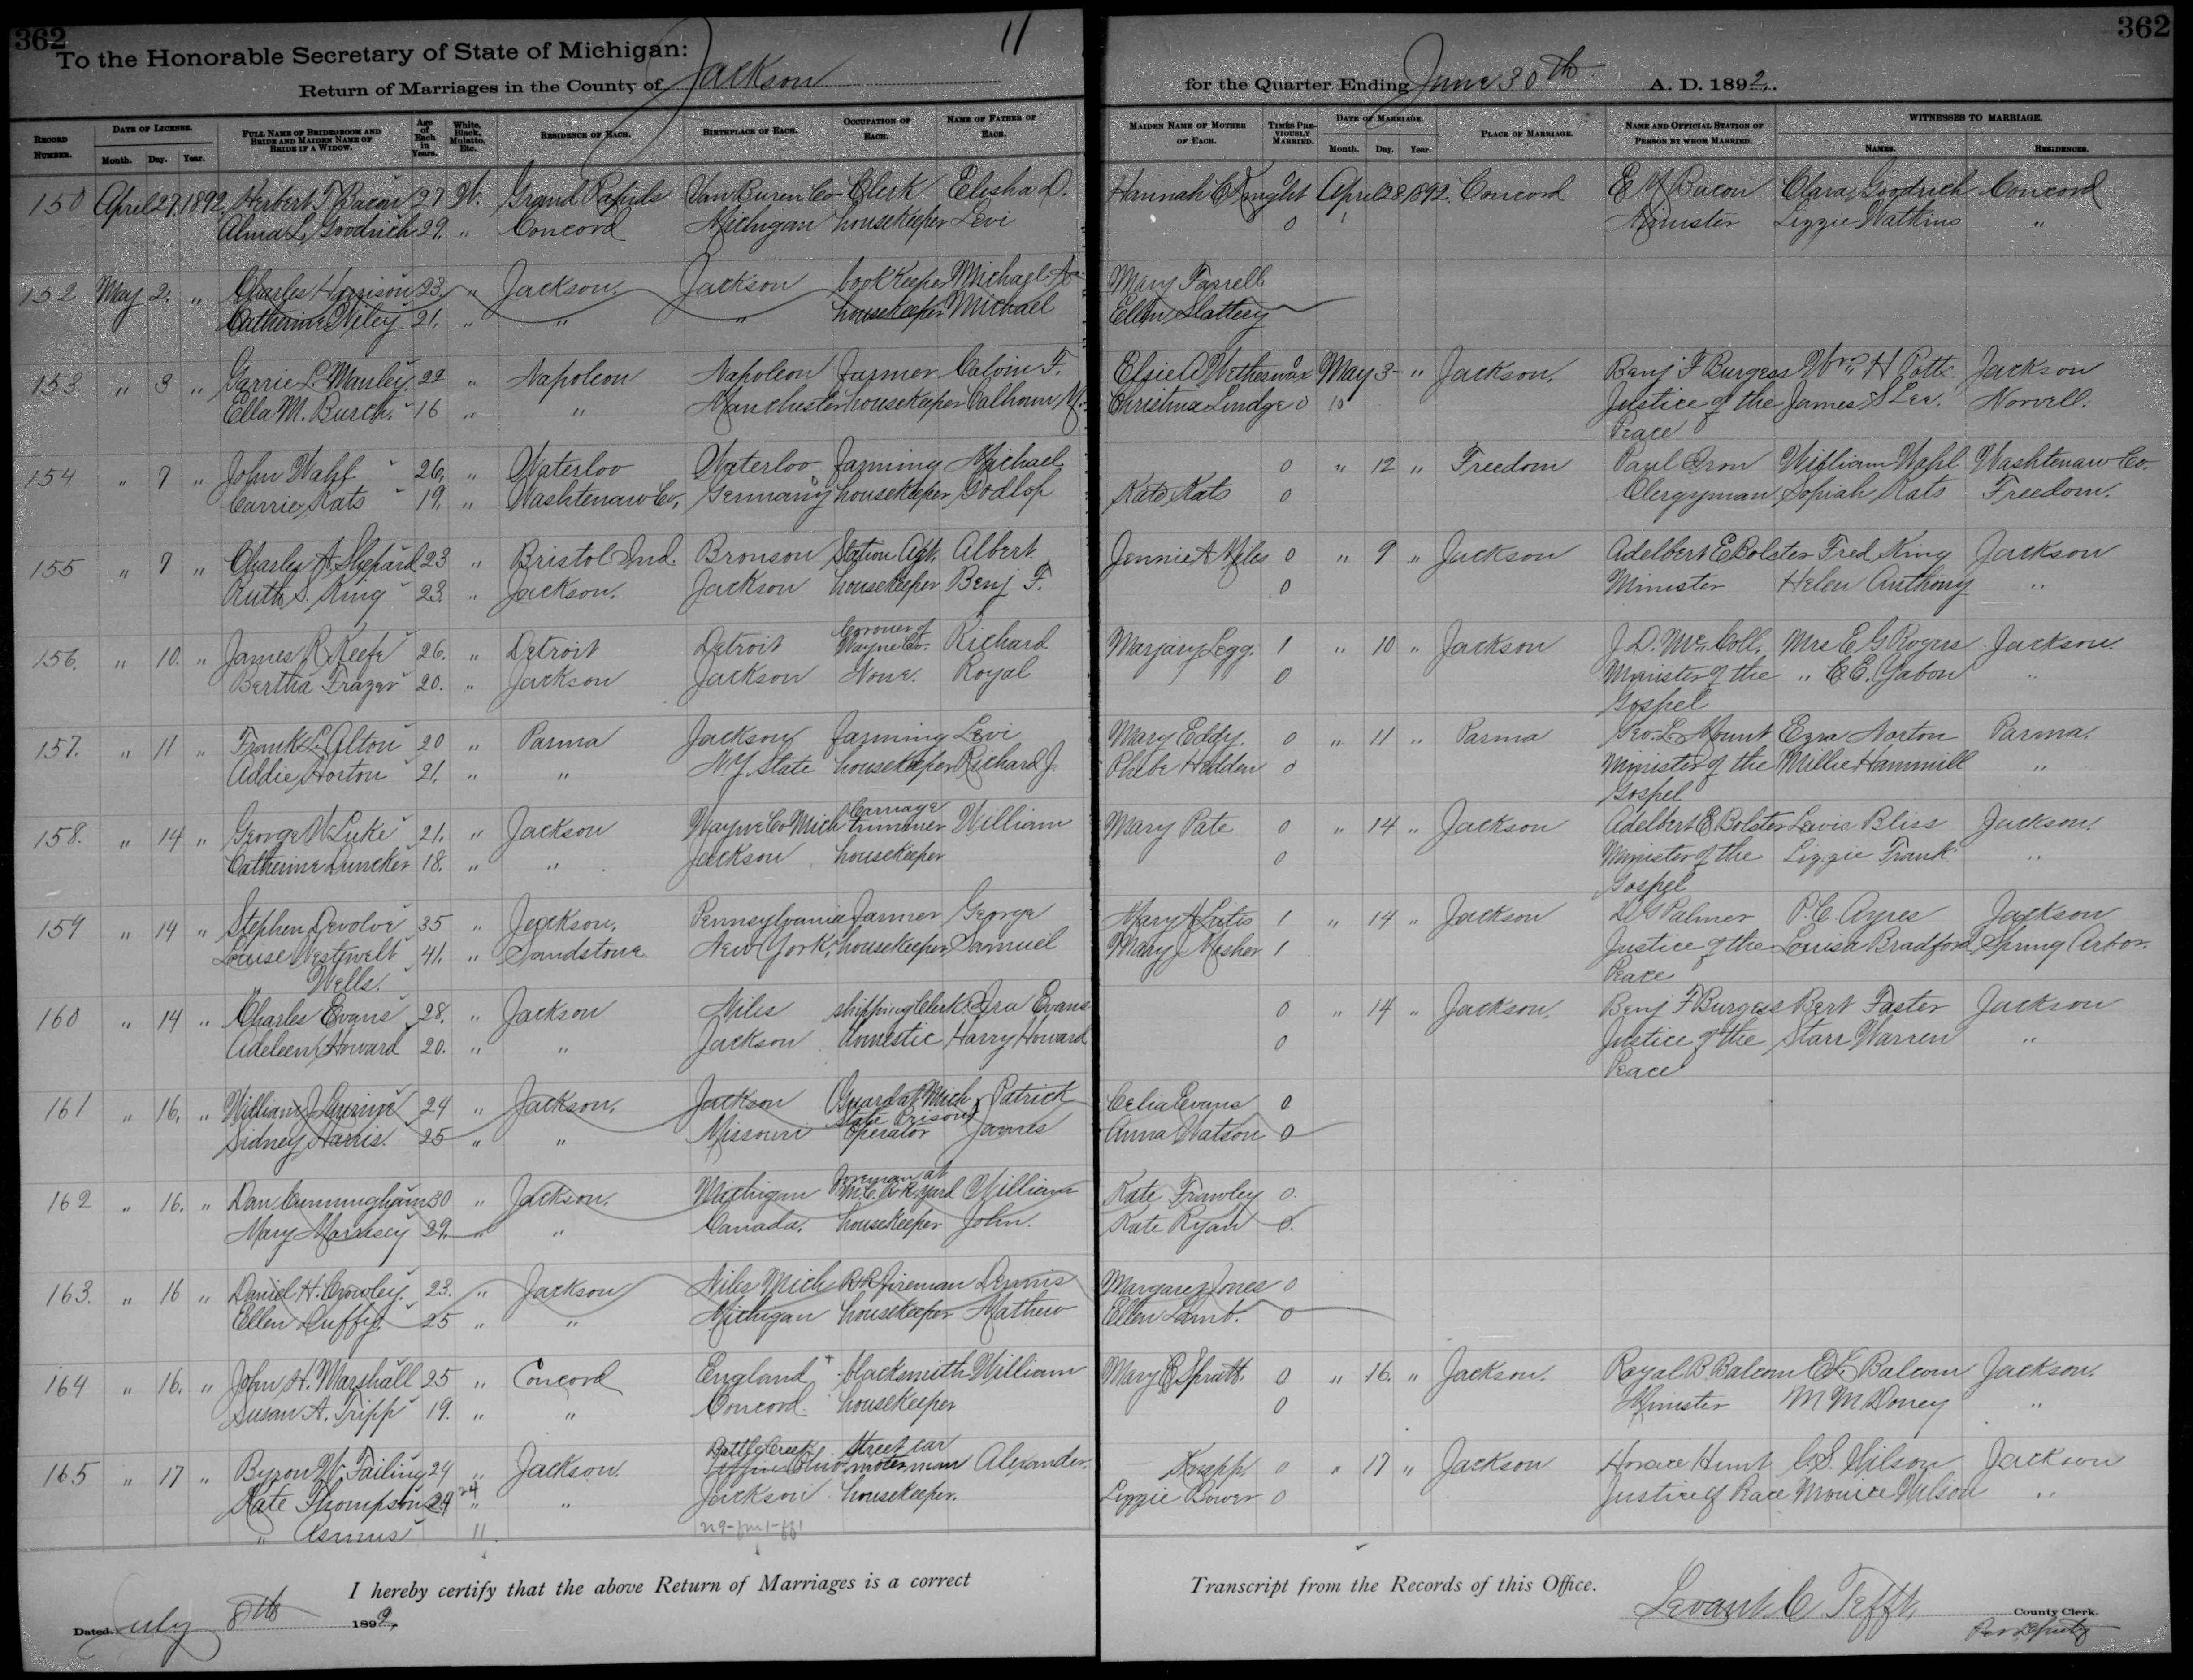 362
11
362
To the Honorable Secretary of State of Michigan:
Return of Marriages in the County of Jackson for the Quarter Ending June 30th A. D. 1892.
RECORD NUMBER. DATE OF LICENSE. Month. Day. Year. FULL NAME OF BRIDEGROOM AND BRIDE AND MAIDEN NAME OF BRIDE IF A WIDOW. Age of Each in Years. White, Black, Mulatto, Etc. RESIDENCE OF EACH. BIRTHPLACE OF EACH. OCCUPATION OF EACH. NAME OF FATHER OF EACH. MAIDEN NAME OF MOTHER OF EACH. TIMES PREVIOUSLY MARRIED. DATE OF MARRIAGE. Month. Day. Year. PLACE OF MARRIAGE. NAME AND OFFICIAL STATION OF PERSON BY WHOM MARRIED. WITNESSES TO MARRIAGE. NAMES. RESIDENCES.
150 April 27. 1892. Herbert T. Bacon 27 W. Grand Rapids Van Buren Co Clerk Elisha D. Hannah C Knight April 28 1892. Concord E M Bacon Clara Goodrich Concord
Alma L. Goodrich 29. " Concord Michigan housekeeper Levi 0 Minister Lizzie Watkins "
152 May 2. " Charles Harrison 23. " Jackson Jackson bookkeeper Michael Mary Farrell
Catherine Wiley 21. " " " housekeeper Michael Ellen Slattery
153 " 3 " Garrie L. Manley. 22 " Napoleon Napoleon farmer Calvin F. Elsie A May 3 " Jackson. Benj F Burgess Wm H Potts Jackson
Ella M. Burch. 16 " " Manchester housekeeper Calhoun M. Christina 0 Justice of the James S Lee. Norvell.
Peace
154 " 7 " John Wahl 26, " Waterloo Waterloo farming Michael 0 " 12 " Freedom Paul Iron William Wahl Washtenaw Co.
Carrie Kats 19. " Washtenaw Co. Germany housekeeper Godlop Kate Kats 0 Clergyman Sophiah Kats Freedom.
155 " 7 " Charles A. Shepard 23 " Bristol Ind. Bronson Station Agt. Albert Jennie A Niles 0 " 9 " Jackson Adelbert E Bolster Fred King Jackson
Ruth S. King 23. " Jackson. Jackson housekeeper Benj F. 0 Minister Helen Anthony "
156. " 10. " James R Keefe 26. " Detroit Detroit Coroner of Wayne Co. Richard Marjary Legg. 1 " 10 " Jackson J. D. McColl, Mrs E G Rogers Jackson.
Bertha Frazer 20. " Jackson Jackson None. Royal 0 Minister of the " C E. Gabon "
Gospel
157. " 11 " Frank L. Alton 20 " Parma Jackson farming Levi Mary Eddy. 0 " 11 " Parma Geo. L. Mount Ezra Norton Parma.
Addie Horton 21. " " N. Y State housekeeper Richard J. Phebe Hedden 0 Minister of the Millie Hammill "
Gospel
158. " 14 " George W. Luke 21. " Jackson Wayne Co Mich Carriage trimmer William Mary Pate 0 " 14 " Jackson Adelbert E Bolster Lewis Bliss Jackson.
Catherine Duncker 18. " " Jackson housekeeper 0 Minister of the Lizzie Frank "
Gospel
159 " 14 " Stephen Devolve 35 " Jackson. Pennsylvania farmer George Mary 1 " 14 " Jackson Palmer P. C. Ayres Jackson
Louise Westfwelt 41. " Sandstone. New York. housekeeper Samuel Mary J Mosher 1 Justice of the Louisa Bradford Spring Arbor.
Wells. Peace
160 " 14 " Charles Evans 28. " Jackson Niles shipping Clerk Ira Evans 0 " 14 " Jackson. Benj F Burgess Bert Faster Jackson
Adeleen Howard 20. " " Jackson domestic Harry Howard 0 Justice of the Starr Warren "
Peace
161 " 16, " William J. 24 " Jackson. Jackson Guard at Mich State Prison Patrick Celia Evans 0
Sidney Harris. 25 " " Missouri Operator James Anna Watson 0
162 " 16. " Dan Cunningham 30 " Jackson. Michigan Foreman at M. C. R R yard William Kate Frawley 0.
Mary Morrisey 29. " " Canada. housekeeper John. Kate Ryan 0.
163. " 16 " Daniel H. Crowley. 23. " Jackson Niles Mich R R fireman Dennis Margaret Jones 0
Ellen Duffy. 25 " " Michigan housekeeper Mathew Ellen Lamb. 0
164 " 16. " John H. Marshall 25 " Concord England blacksmith William Mary E Spratt. 0 " 16. " Jackson. Royal B. Balcom E. L. Balcom Jackson.
Susan A. Tripp 19. " " Concord. housekeeper 0 Minister M M Doney "
165 " 17 " Byron W. Failing 24 " Jackson. Battle Creek Ohio street car motorman Alexander. Knapp 0 " 17 " Jackson Horace Hunt C. S. Wilson Jackson
Kate Thompson 24 24 " " Jackson housekeeper. Lizzie Bower 0 Justice of Peace Monroe Wilson "
" Asmus 11
I hereby certify that the above Return of Marriages is a correct Transcript from the Records of this Office.
Dated July 8th 1892, Levant C Tefft, County Clerk.
Per Deputy